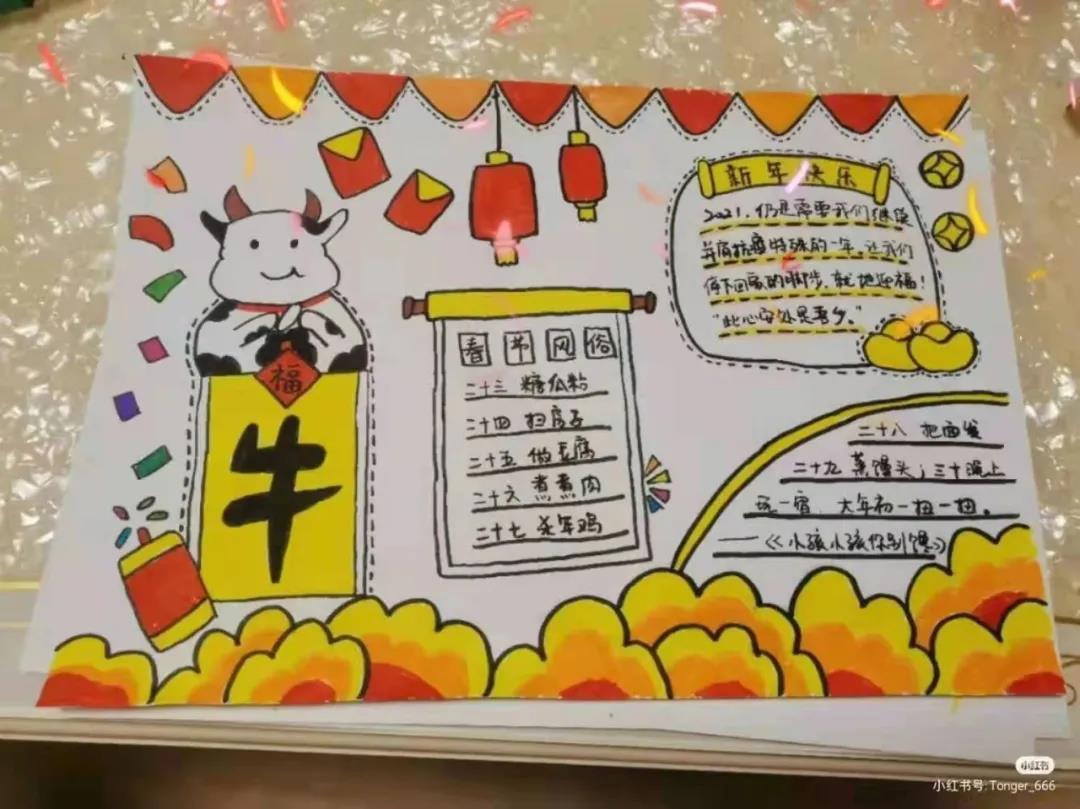 新年快乐
2021，仍是需要我们继续
并肩抗疫特殊的一年，让我们
停下回家的脚步，就地迎福！
“此心安处是吾乡。”
福
牛
春节风俗
二十三 糖瓜粘
二十四 扫房子
二十五 做豆腐
二十六 煮煮肉
二十七 杀年鸡
二十八 把面发
二十九 蒸馒头；三十晚上
玩一宿，大年初一扭一扭。
——《小孩小孩你别馋》
小红书
小红书号:Tonger_666